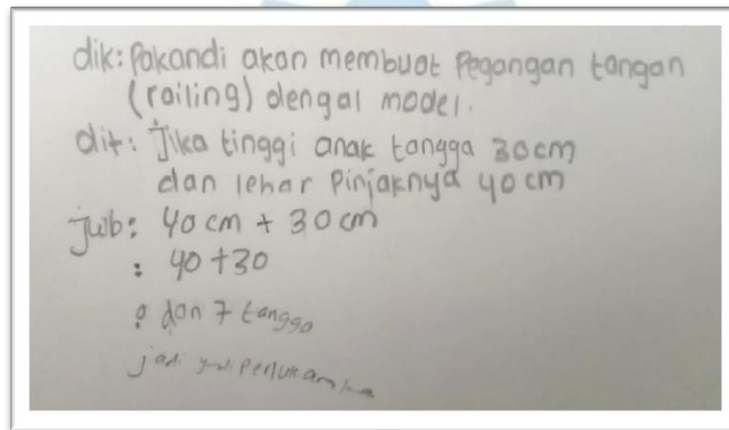 dik: Pakandi akan membuat Pegangan tangan
(railing) dengal model.
dit: Jika tinggi anak tangga 30cm
dan lebar Pinjaknya 40 cm
Jwb: 40 cm + 30 cm
: 40 + 30
: dan 7 tangga
jadi yang